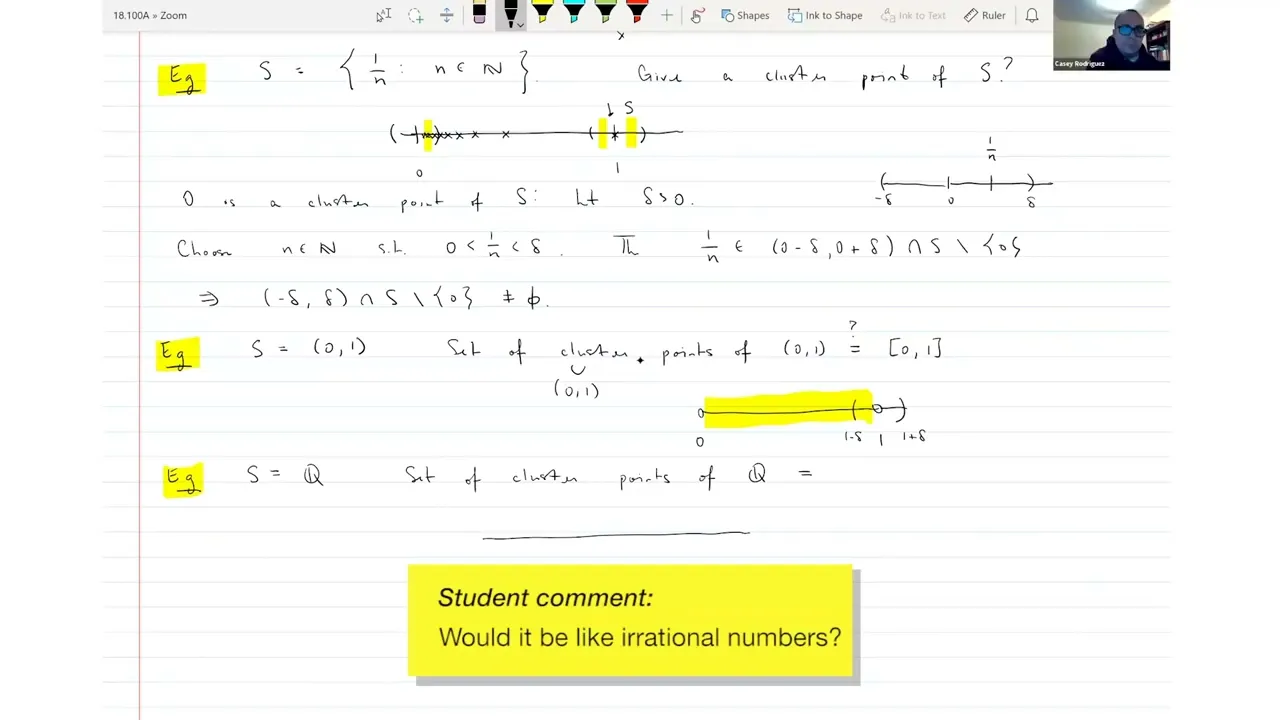 18.100A » Zoom
Shapes Ink to Shape Ink to Text Ruler
Casey Rodriguez
x
Eg S = { 1/n : n ∈ ℕ }. Give a cluster point of S?
↓ S
0 1
1/n
-δ 0 δ
0 is a cluster point of S: Let δ>0.
Choose n∈ℕ s.t. 0 < 1/n < δ. Th 1/n ∈ (0-δ, 0+δ) ∩ S \ {0}
⇒ (-δ, δ) ∩ S \ {0} ≠ ϕ.
?
Eg S = (0,1) Set of cluster points of (0,1) = [0,1]
∪
(0,1)
0 1-δ 1 1+δ
Eg S = ℚ Set of cluster points of ℚ =
Student comment:
Would it be like irrational numbers?